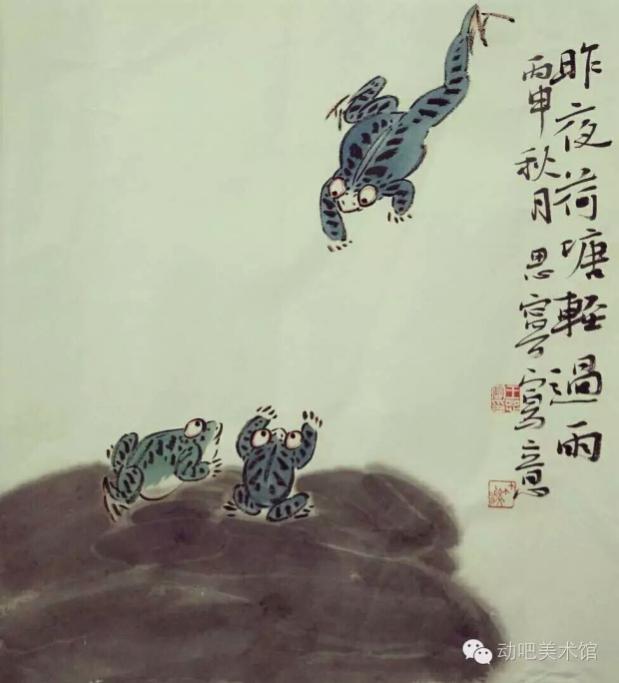 昨夜荷塘輕過雨
丙申秋月思寧寫意
动吧美术馆